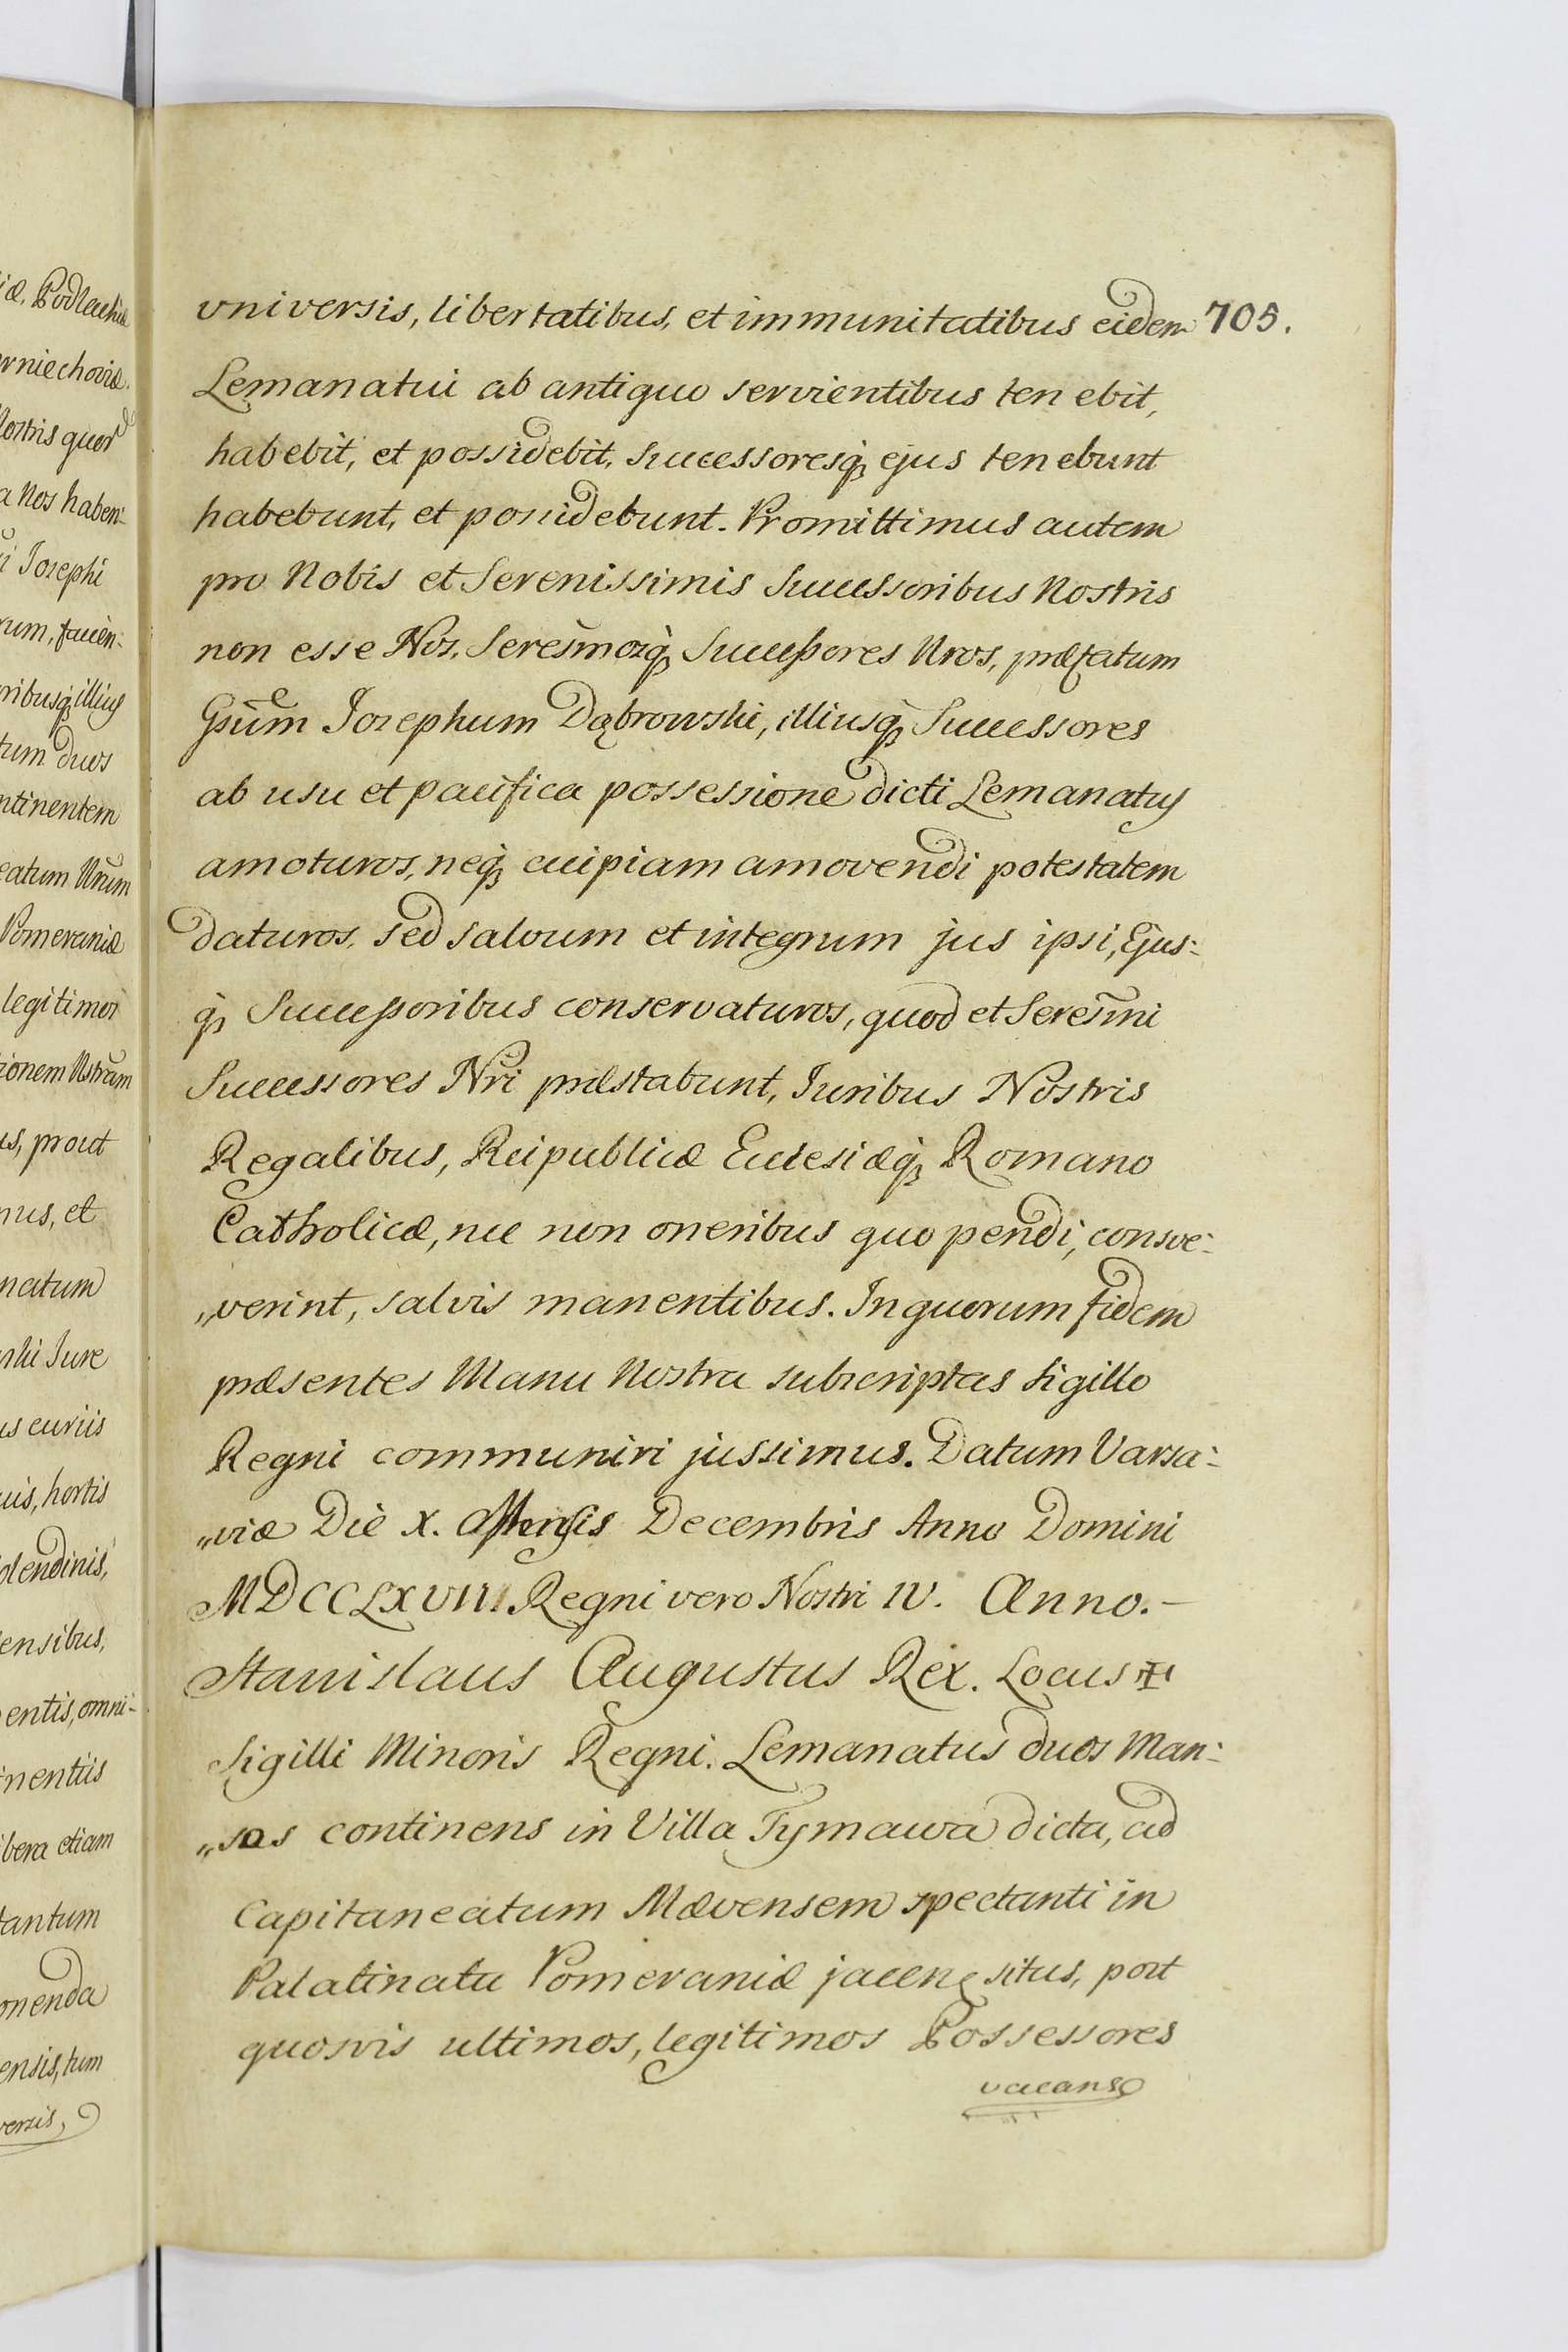 iæ, Podlachiæ
rniechoviæ.
Nostris quord
a Nos haben:
i Josephi
rum, faven:
ribusq illius
tum duos
ntinentem
eatum Nrum
Pomeraniæ
legitimos
ionem Nstram
us, prout
mus, et
natum
ski Jure
us curiis
uis, hortis
olendinis,
ensibus,
entis, omni-
inentiis
ibera etiam
tantum
onenda
ensis, tum
versis,
universis, libertatibus, et immunitatibus eidem 705.
Lemanatui ab antiquo servientibus tenebit,
habebit, et possidebit, Successoresq ejus tenebunt
habebunt, et possidebunt. Promittimus autem
pro Nobis et Serenissimis Successoribus Nostris
non esse Nos, Seresmosq Successores Nros, præfatum
Gsum Josephum Dąbrowski, illiusq Successores
ab usu et pacifica possessione dicti Lemanatus
amoturos, neq cuipiam amovendi potestatem
daturos, sed salvum et integrum jus ipsi, Ejus:
q Successoribus conservaturos, quod et Seresmi
Successores Nri præstabunt, Juribus Nostris
Regalibus, Reipublicæ Eclesiæq Romano
Catholicæ, nec non oneribus quo pendi, consve:
„verint, salvis manentibus. In quorum fidem
præsentes Manu Nostra subscriptas Sigillo
Regni communiri jussimus. Datum Varsa:
„viæ Die X. Mensis Decembris Anno Domini
MDCCLXVIII Regni vero Nostri IV. Anno.-
Stanislaus Augustus Rex. Locus ✠
Sigilli Minoris Regni. Lemanatus duos Man:
„sos continens in Villa Tymawa dicta, ad
Capitaneatum Mævensem spectanti in
Palatinatu Pomeraniæ jacen, situs, post
quosvis ultimos, legitimos Possessores
vacans